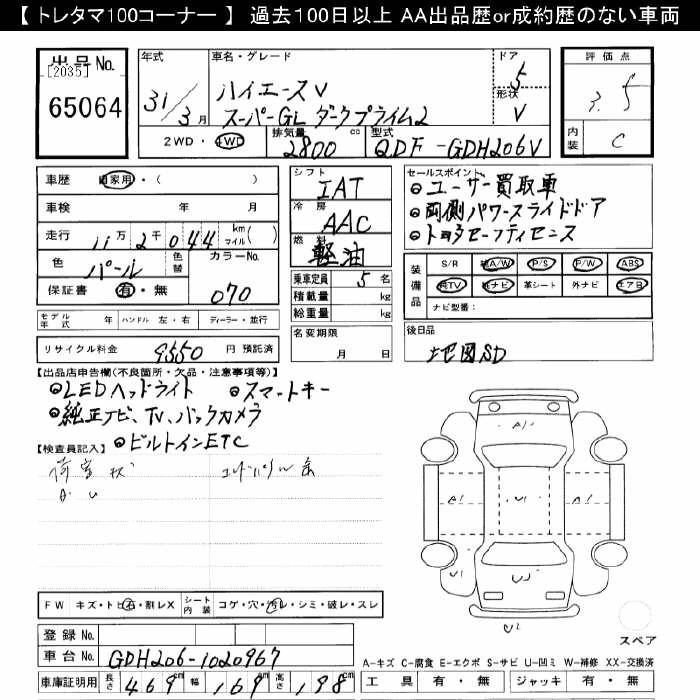 【 トレタマ100コーナー 】 過去100日以上 AA出品歴or成約歴のない車両
出品No.
[2035]
65064
年式
31/3月
車名・グレード
ハイエースV
スーパーGL ダークプライム2
ドア
5
形状
V
2WD・4WD
排気量
2800 cc
型式
QDF-GDH206V
評価点
3.5
内装
C
車歴 自家用・( )
車検 年 月
走行 11万2千044 km マイル( )
色 パール 色替 カラーNo.
保証書 有・無 070
モデル年式 年 ハンドル 左・右 ディーラー・並行
リサイクル料金 9550 円 預託済
シフト
IAT
冷房
AAC
燃料
軽油
乗車定員 5 名
積載量 kg
総重量 kg
名変期限
月 日
セールスポイント
ユーザー買取車
両側パワースライドドア
トヨタセーフティセンス
装備品
S/R 純A/W P/S P/W ABS
純TV 純ナビ 革シート 外ナビ エアB
ナビ型番:
後日品
地図SD
【出品店申告欄(不良箇所・欠品・注意事項等)】
LEDヘッドライト スマートキー
純正ナビ、TV、バックカメラ
ビルトインETC
【検査員記入】
荷室
A1
A1 U1 A1
U1
スペア
FW キズ・トビ石・割レX シート内装 コゲ・穴・汚レ・シミ・破レ・スレ
登録No.
車台No. GDH206-1020967
車庫証明用 長さ 469cm 幅 169cm 高さ 198cm
A-キズ C-腐食 E-エクボ S-サビ U-凹ミ W-補修 XX-交換済
工具 有・無 ジャッキ 有・無